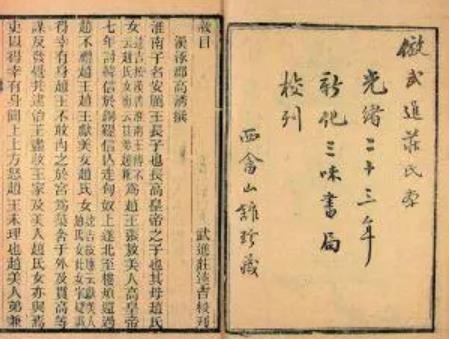 倣武進莊氏本
光緒二十三年
新化三味書局
校刊
西畬山館珍藏
敘目
漢涿郡高誘撰 武進莊逵吉校刊
淮南子名安厲王長子也長高皇帝之子也其母趙氏
女為趙王張敖美人高皇帝
七年討韓信於銅鞮信亡走匈奴上遂北至樓煩還過
趙不禮趙王趙王獻美女趙氏女
得幸有身趙王不敢內之於宮為築舍于外及貫高等
謀反發覺并逮治王盡收王家及美人趙氏女亦與焉
吏以得幸有身聞上上方怒趙王未理也趙美人弟兼